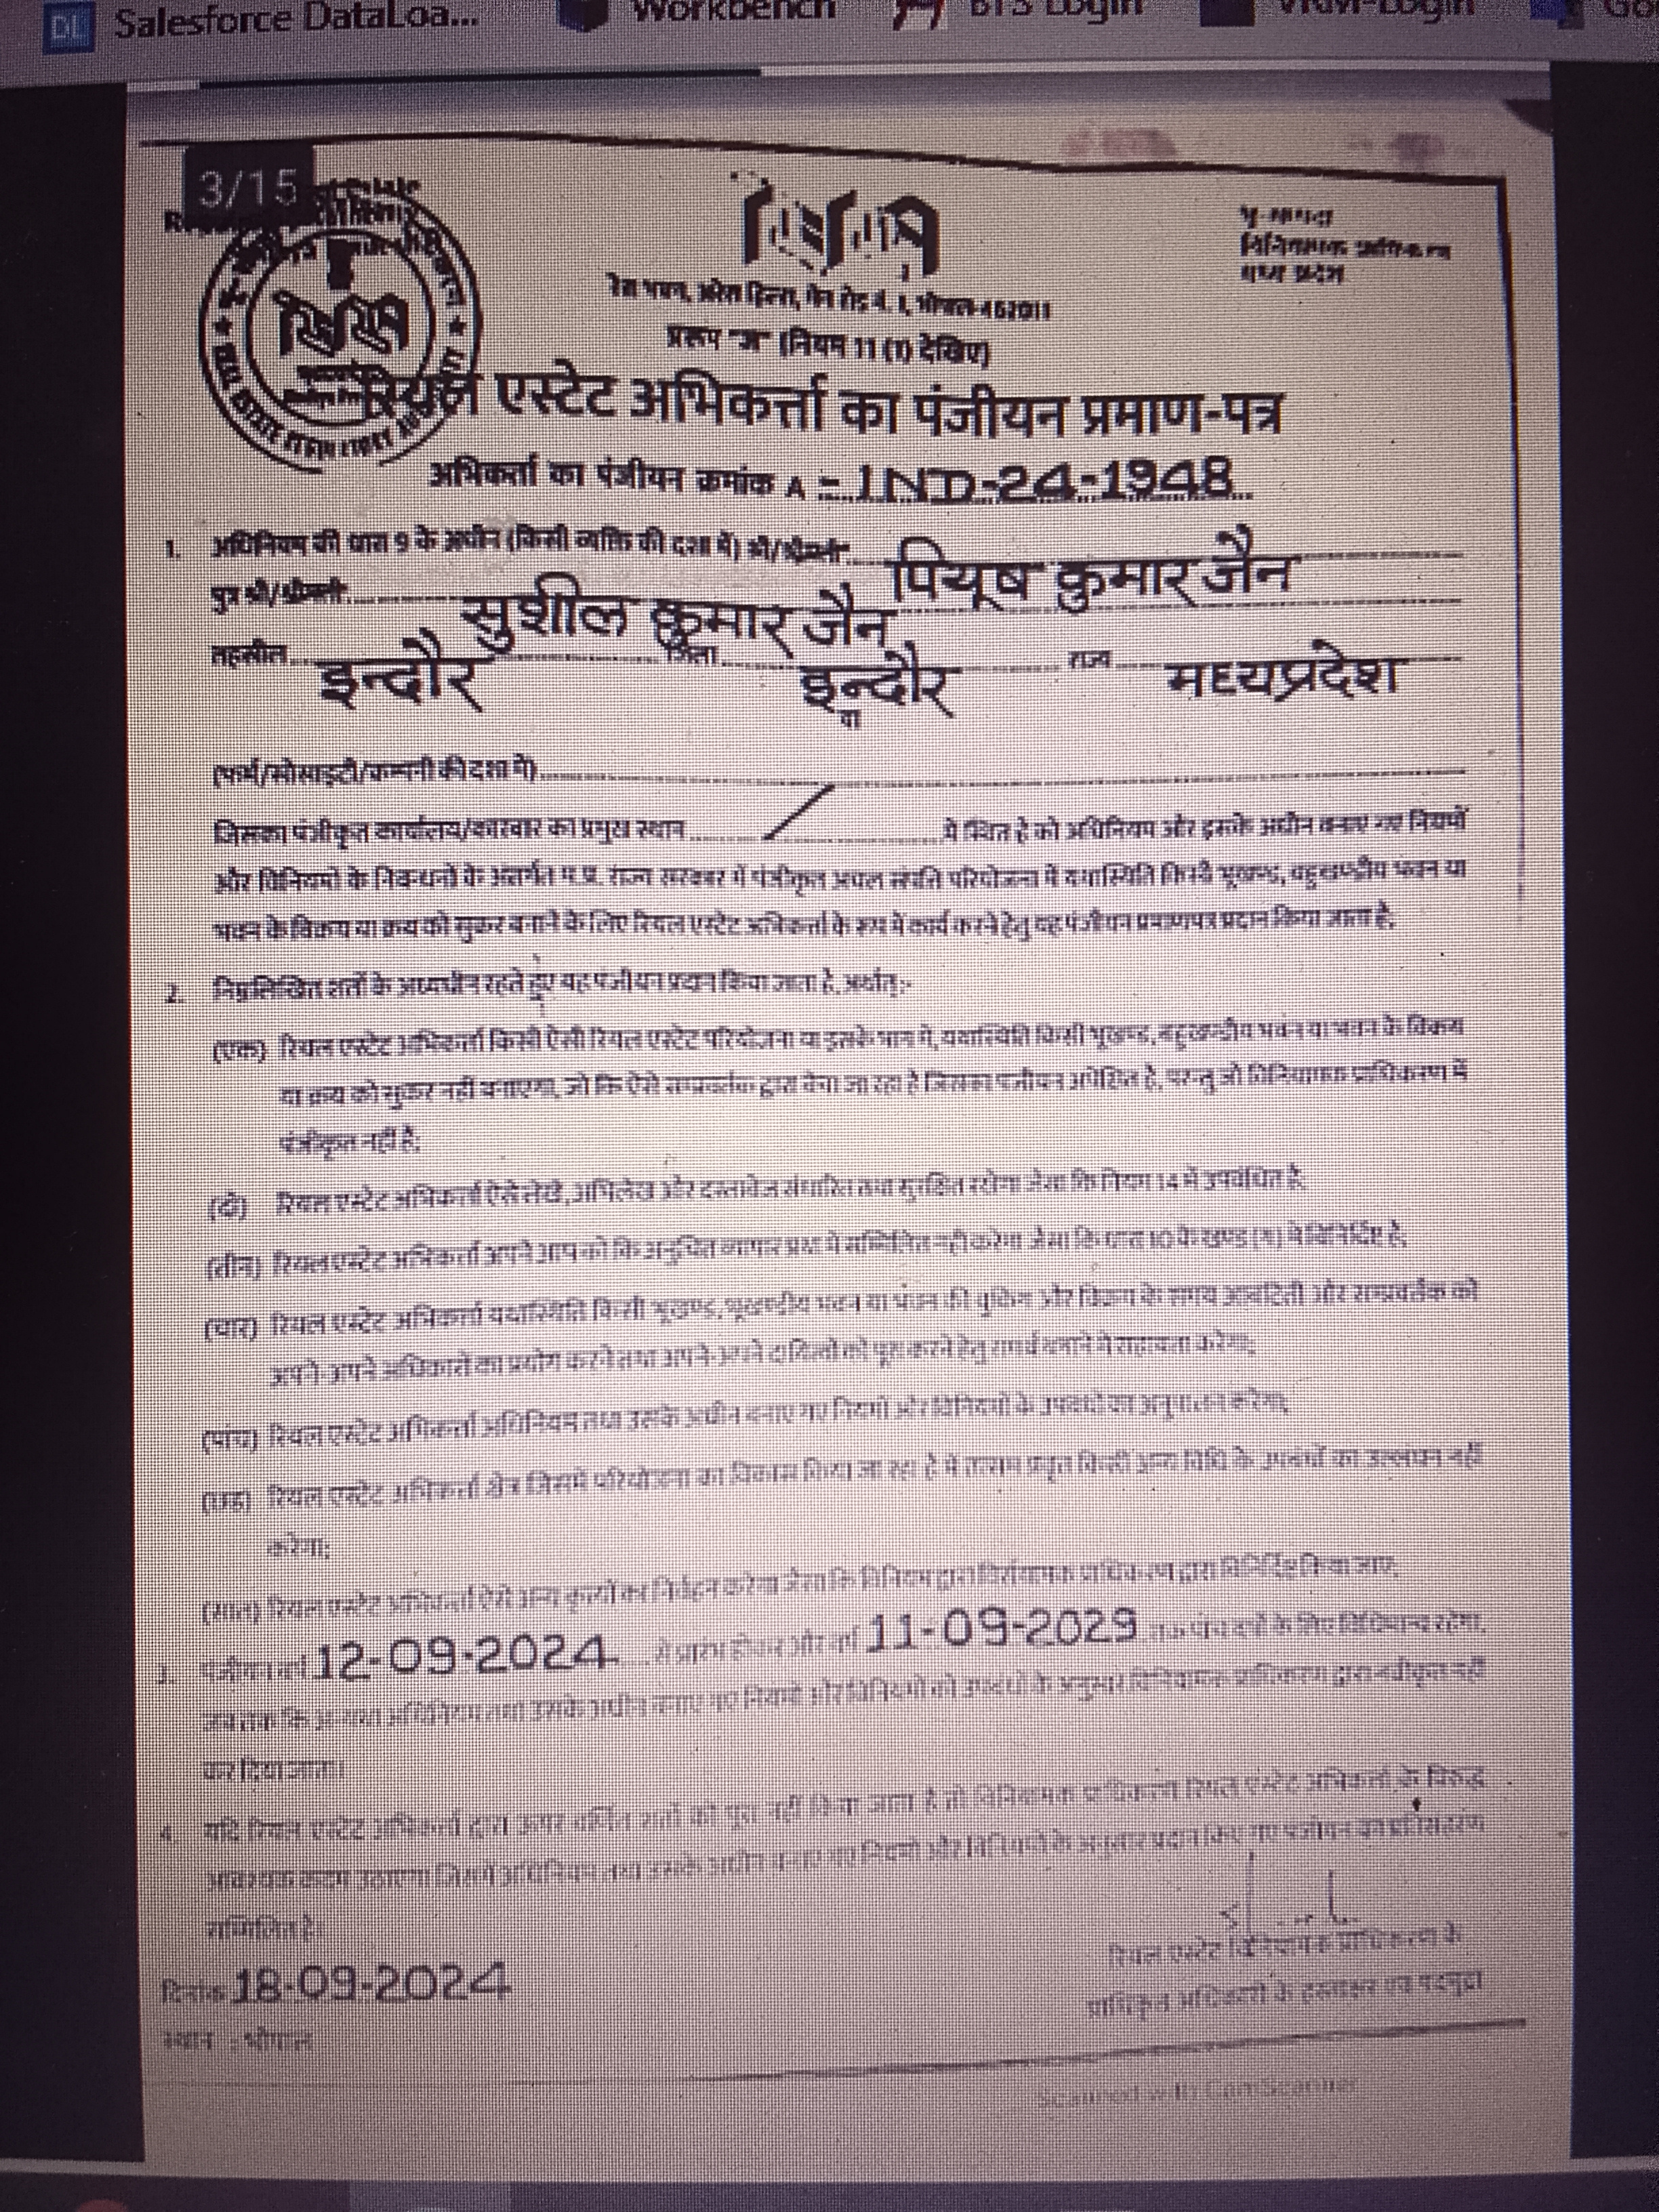 DL Salesforce DataLoa... Workbench BTS Login
3/15
रेरा भवन, अरेरा हिल्स, मेन रोड नं. 1, भोपाल-462011
प्ररूप "ज" (नियम 11 (1) देखिए)
रियल एस्टेट अभिकर्त्ता का पंजीयन प्रमाण-पत्र
अभिकर्ता का पंजीयन क्रमांक A - IND-24-1948
1. अधिनियम की धारा 9 के अधीन (किसी व्यक्ति की दशा में) श्री/श्रीमती पियूष कुमार जैन
पुत्र श्री/श्रीमती सुशील कुमार जैन
तहसील इन्दौर जिला इन्दौर राज्य मध्यप्रदेश
या
(फर्म/सोसाइटी/कम्पनी की दशा में)
जिसका पंजीकृत कार्यालय/कारबार का प्रमुख स्थान में स्थित है को अधिनियम और इसके अधीन बनाए गए नियमों
और विनियमों के निबन्धनों के अंतर्गत म.प्र. राज्य सरकार में पंजीकृत परियोजना में यथास्थिति किसी भूखण्ड, बहुखण्डीय भवन या
भवन के विक्रय या क्रय को सुकर बनाने के लिए रियल एस्टेट अभिकर्त्ता के रूप में कार्य करने हेतु यह पंजीयन प्रमाणपत्र प्रदान किया जाता है,
2. निम्नलिखित शर्तों के अध्यधीन रहते हुए यह पंजीयन प्रदान किया जाता है, अर्थात्:-
(एक) रियल एस्टेट अभिकर्त्ता किसी ऐसी रियल एस्टेट परियोजना या इसके भाग में, यथास्थिति किसी भूखण्ड, बहुखण्डीय भवन या भवन के विक्रय
या क्रय को सुकर नहीं बनाएगा, जो कि ऐसे सम्प्रवर्तक द्वारा बेचा जा रहा है जिसका पंजीयन अपेक्षित है, परन्तु जो विनियामक प्राधिकरण में
पंजीकृत नहीं है;
(दो) रियल एस्टेट अभिकर्त्ता ऐसे लेखे, अभिलेख और दस्तावेज संधारित तथा सुरक्षित रखेगा जैसा कि नियम 14 में उपबंधित है;
(तीन) रियल एस्टेट अभिकर्त्ता अपने आप को कि अनुचित व्यापार प्रथा में सम्मिलित नहीं करेगा जैसा कि धारा 10 के खण्ड (ग) में विनिर्दिष्ट है;
(चार) रियल एस्टेट अभिकर्त्ता यथास्थिति किसी भूखण्ड, भूखण्डीय भवन या भवन की बुकिंग और विक्रय के समय आबंटिती और सम्प्रवर्तक को
अपने-अपने अधिकारों का प्रयोग करने तथा अपने-अपने दायित्वों को पूरा करने हेतु समर्थ बनाने में सहायता करेगा;
(पांच) रियल एस्टेट अभिकर्त्ता अधिनियम तथा उसके अधीन बनाए गए नियमों और विनियमों के उपबंधों का अनुपालन करेगा;
(छह) रियल एस्टेट अभिकर्त्ता क्षेत्र जिसमें परियोजना का विकास किया जा रहा है में तत्समय प्रवृत्त किसी अन्य विधि के उपबंधों का उल्लंघन नहीं
करेगा;
(सात) रियल एस्टेट अभिकर्त्ता ऐसे अन्य कृत्यों का निर्वहन करेगा जैसा कि विनियम द्वारा विनियामक प्राधिकरण द्वारा विनिर्दिष्ट किया जाए,
3. 12-09-2024 से प्रारंभ होकर और वर्ष 11-09-2029 तक पांच वर्षों के लिए विधिमान्य रहेगा,
अधिनियम तथा उसके अधीन बनाए गए नियमों और विनियमों के उपबंधों के अनुसार विनियामक प्राधिकरण द्वारा नवीकृत नहीं
कर दिया जाता।
4. यदि रियल एस्टेट अभिकर्त्ता द्वारा ऊपर वर्णित शर्तों को पूरा नहीं किया जाता है तो विनियामक प्राधिकरण रियल एस्टेट अभिकर्त्ता के विरुद्ध
आवश्यक कदम उठाएगा जिसमें अधिनियम तथा उसके अधीन बनाए गए नियमों और विनियमों के अनुसार प्रदान किए गए पंजीयन का प्रतिसंहरण
सम्मिलित है।
दिनांक 18-09-2024
स्थान : भोपाल
रियल एस्टेट विनियामक प्राधिकरण के
प्राधिकृत अधिकारी के हस्ताक्षर एवं पदमुद्रा
Scanned with CamScanner